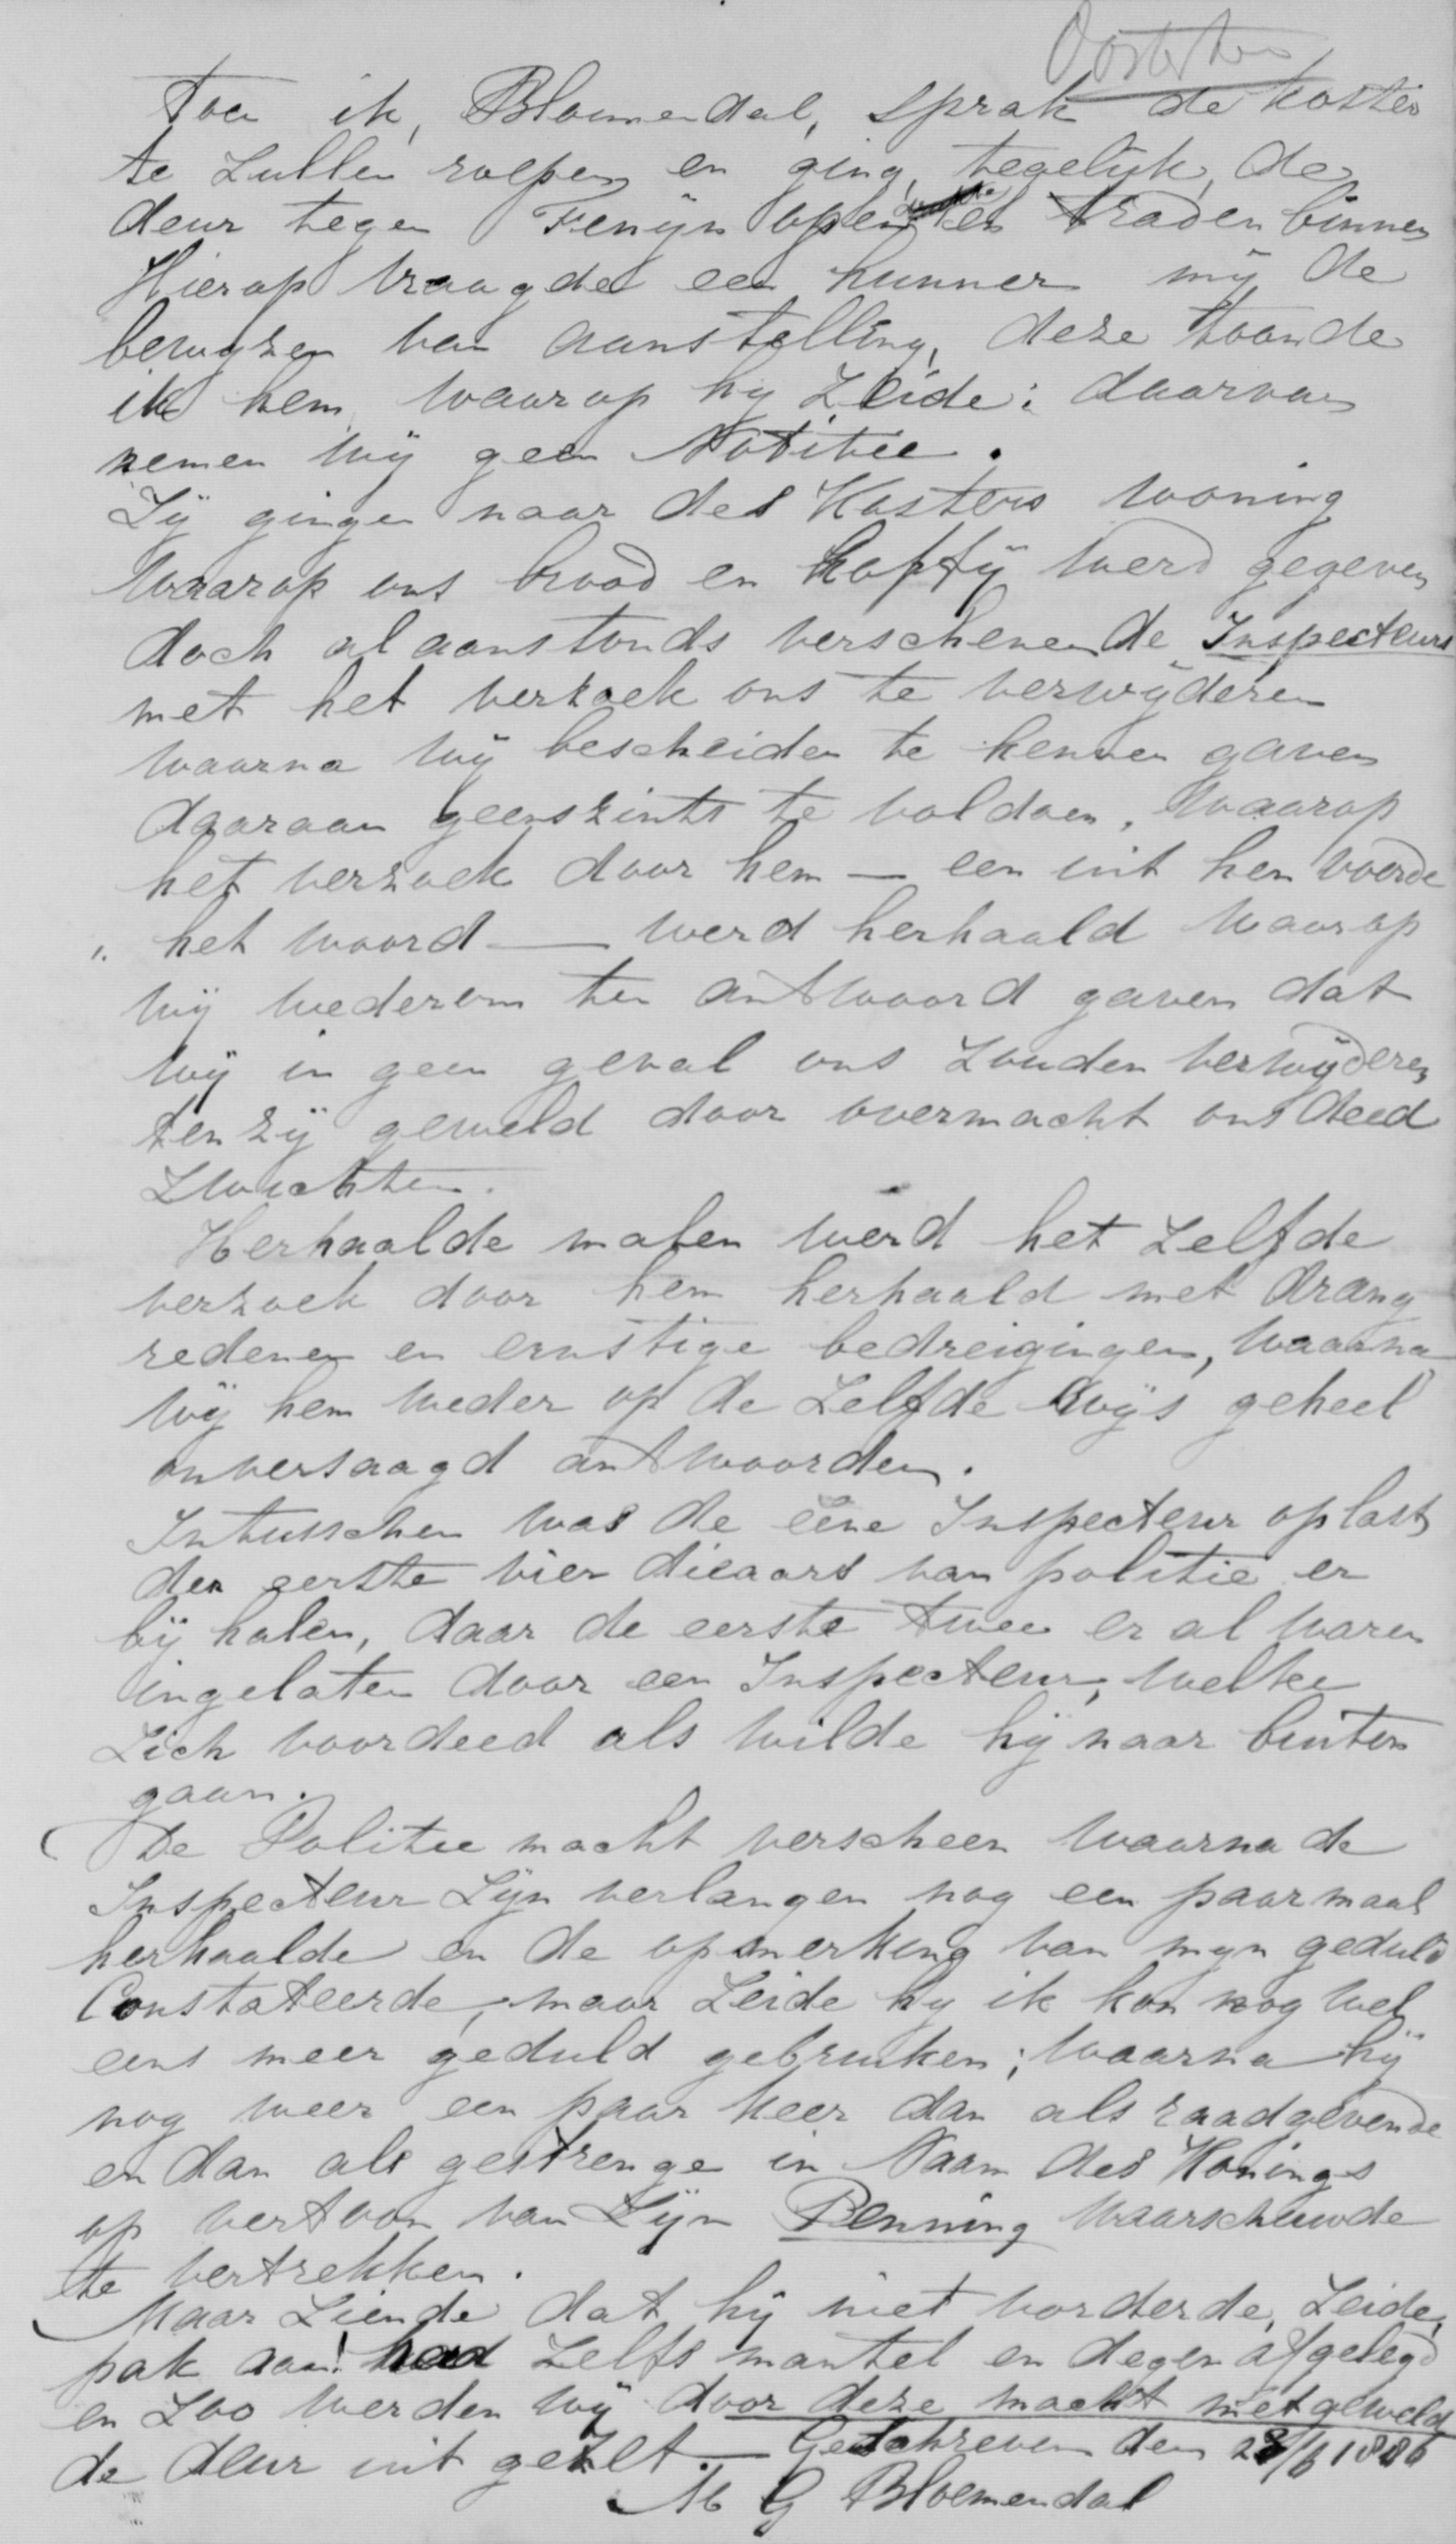 Toen ik, Bloemendal, sprak de koster
te Zullen roepen en ging, tegelyk, de
deur tegen Fenijn open en traden binnen
Hierop vraagde een hunner mij de
bewyzen van aanstelling, deze toonde
ik hem, waarop hy Zeide: daarvan
nemen wij geen Notitie.
Zij gingen naar des Kosters woning
waarop ons brood en koffij werd gegeven
doch al aanstonds verschenen de Inspecteurs
met het verzoek ons te verwijderen
waarna wij bescheiden te kennen gaven
daaraan geenszints te voldoen, waarop
het verzoek door hem — een uit hen voerde
het woord — werd herhaald waarop
wij wederom ten antwoord gaven dat
wij in geen geval ons Zouden verwijderen,
ten zij geweld door overmacht ons deed
Zwichten.
Herhaalde malen werd het Zelfde
verzoek door hem herhaald met drang
redenen en ernstige bedreigingen, waarna
wij hem weder op de Zelfde wijs geheel
onversaagd antwoorden.
Intusschen was de eene Inspecteur op last
der eerste vier dieaars van politie er
bij halen, daar de eerste twee er al waren
ingelaten door een Inspecteur, welke
Zich voordeed als wilde hij naar buiten
gaan.
De Politie macht verscheen waarna de
Inspecteur Zijn verlangen nog een paarmaal
herhaalde en de opmerking van myn geduld
Constateerde, maar Zeide hy ik kon nog wel
eens meer geduld gebruiken; waarna hij
nog weer een paar keer dan als raadgevende
en dan als gestrenge in Naam des Konings
op vertoon van Zijn Penning waarschuwde
te vertrekken.
Maar Ziende dat hij niet vorderde, Zeide,
pak aan! had Zelfs mantel en degen afgelegd
en Zoo werden wij door deze macht met geweld
de deur uit gezet. — Geschreven den 28/6 1886
M G Bloemendal